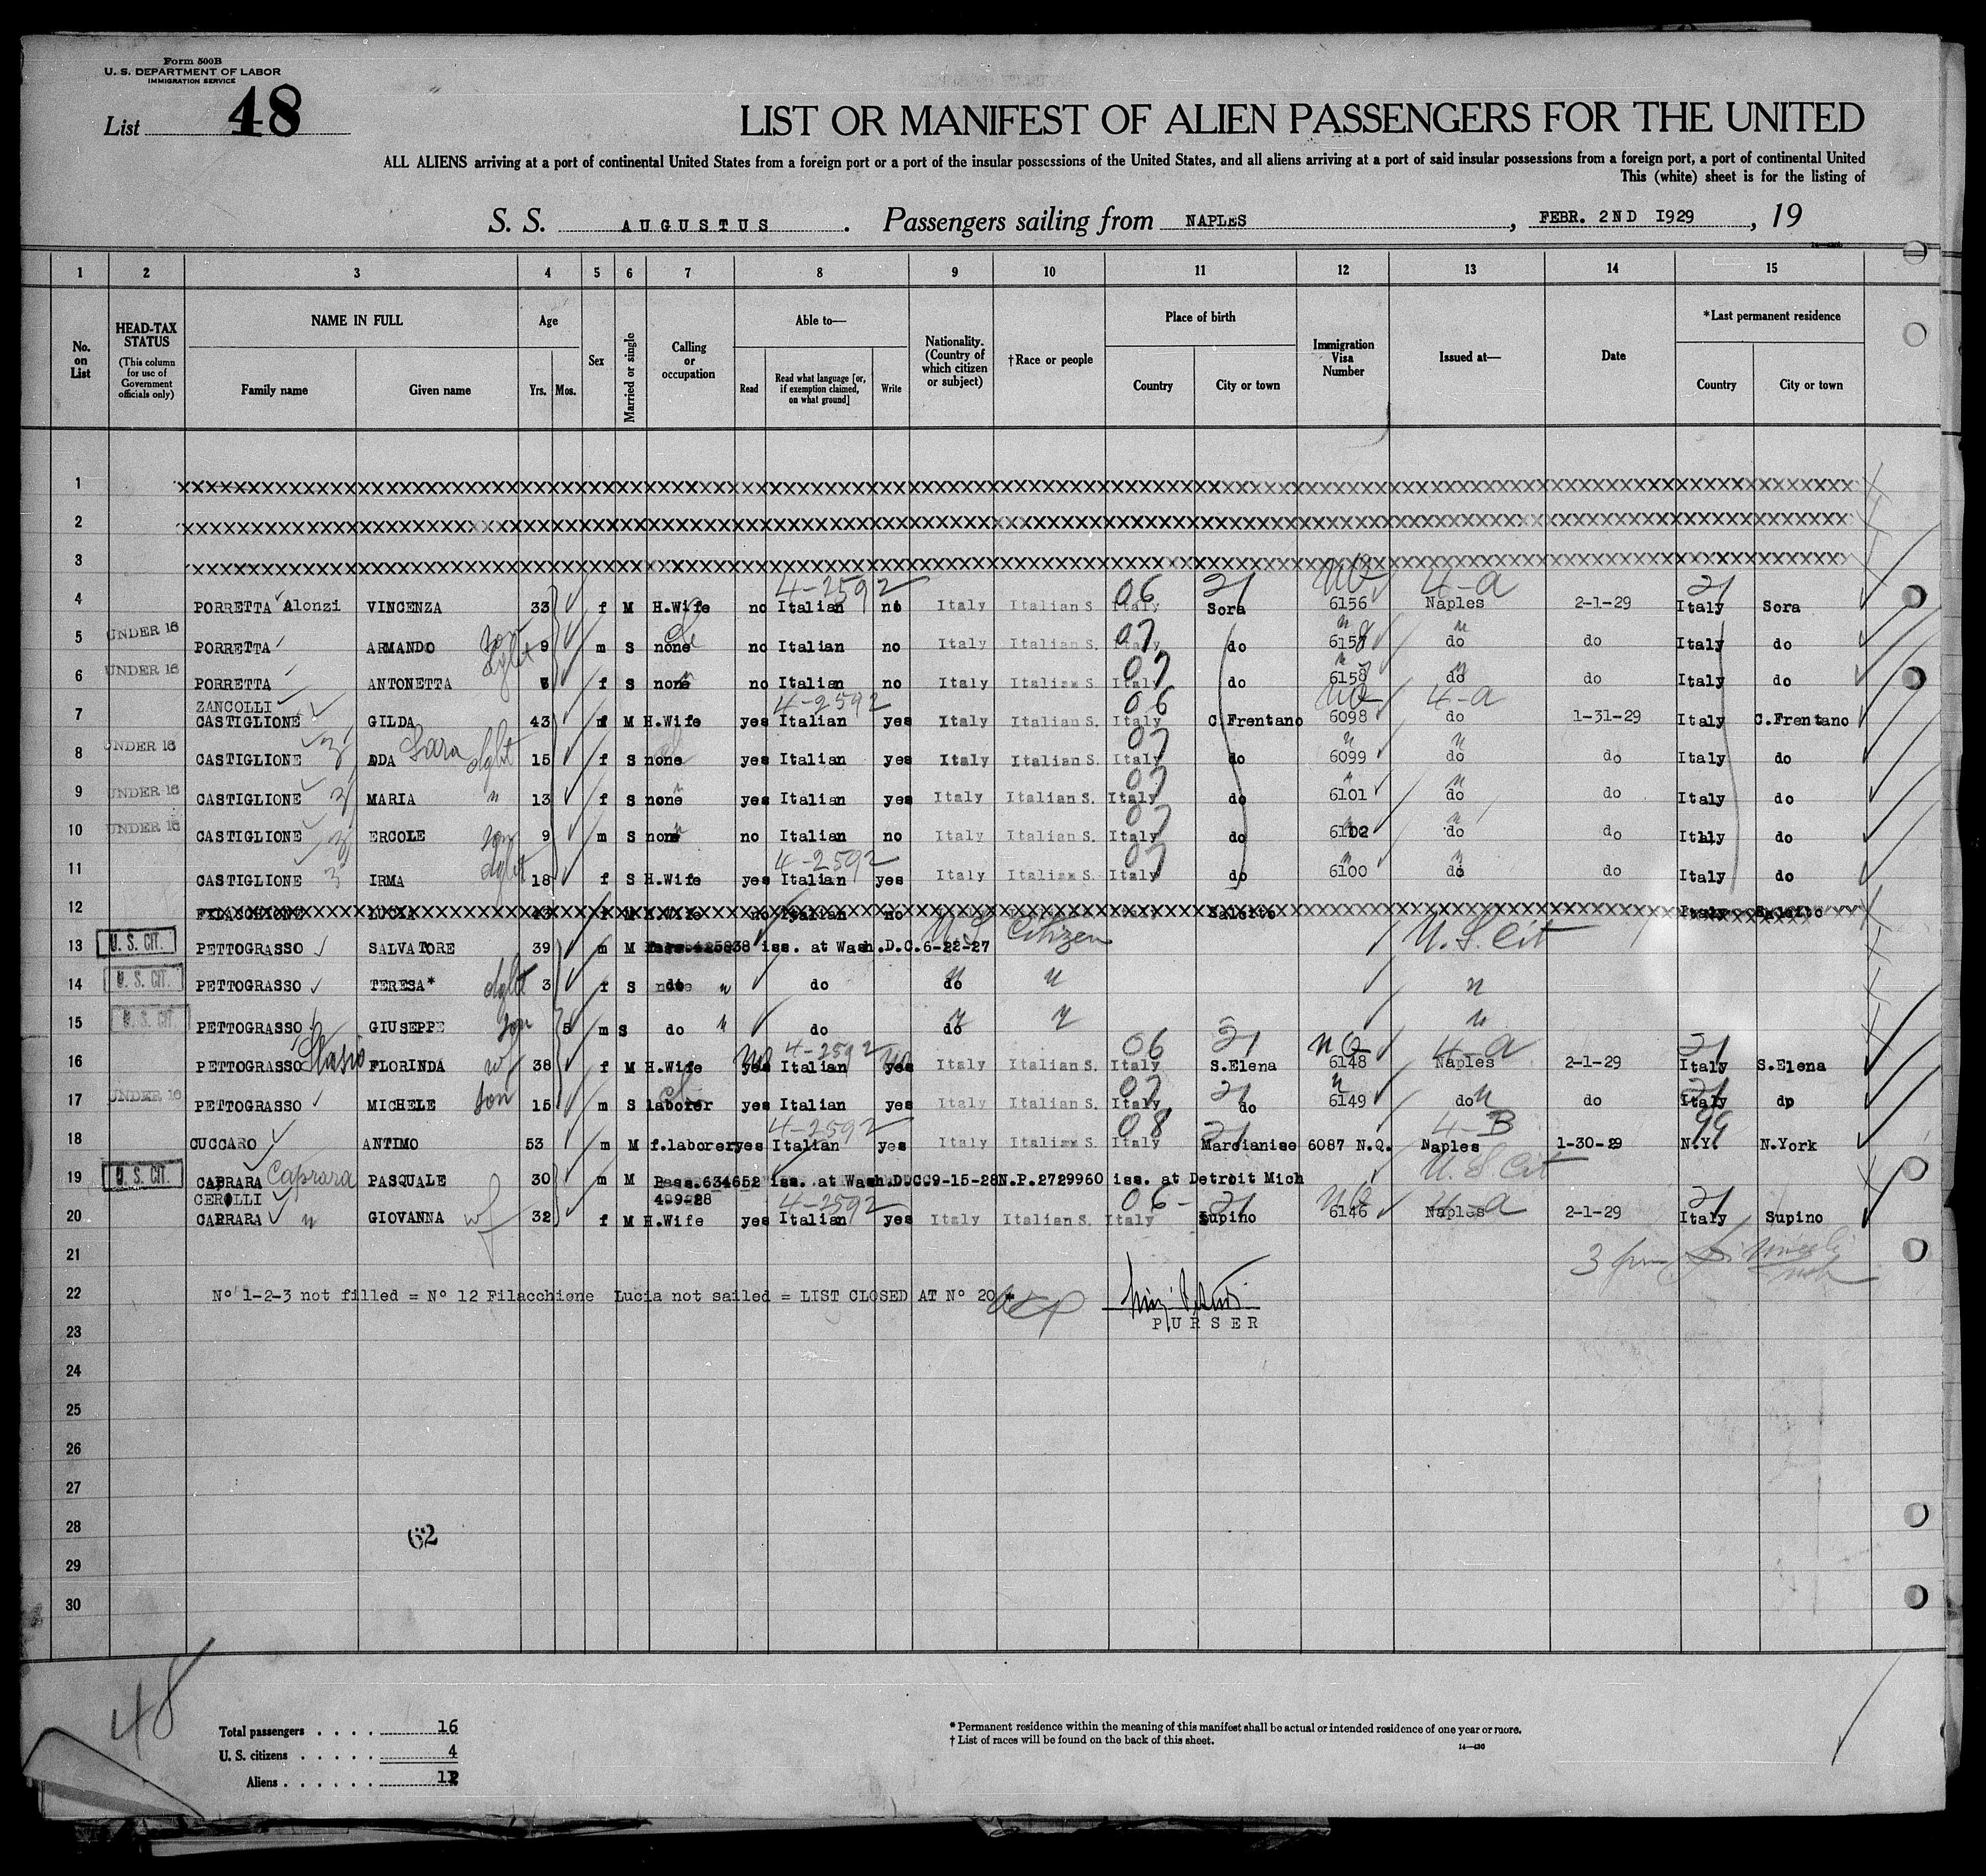 Form 500B
U. S. DEPARTMENT OF LABOR
IMMIGRATION SERVICE
List 48
LIST OR MANIFEST OF ALIEN PASSENGERS FOR THE UNITED
ALL ALIENS arriving at a port of continental United States from a foreign port or a port of the insular possessions of the United States, and all aliens arriving at a port of said insular possessions from a foreign port, a port of continental United
This (white) sheet is for the listing of
S. S. AUGUSTUS . Passengers sailing from NAPLES , FEBR. 2ND 1929 , 19
1 2 3 4 5 6 7 8 9 10 11 12 13 14 15
No. on List
HEAD-TAX STATUS (This column for use of Government officials only)
NAME IN FULL Family name Given name
Age Yrs. Mos.
Sex
Married or single
Calling or occupation
Able to— Read Read what language [or, if exemption claimed, on what ground] Write
Nationality. (Country of which citizen or subject)
†Race or people
Place of birth Country City or town
Immigration Visa Number
Issued at—
Date
*Last permanent residence Country City or town
1
2
3
4-2592 06 21 NQ 4-a 21
4 PORRETTA Alonzi VINCENZA 33 f M H.Wife no Italian no Italy Italian S. Italy Sora 6156 Naples 2-1-29 Italy Sora
5 UNDER 16 PORRETTA ARMANDO son 9 m S none no Italian no Italy Italian S. 07 Italy do 6157 do do Italy do
6 UNDER 16 PORRETTA ANTONETTA dght f S none no Italian no Italy Italian S. 07 Italy do 6158 do do Italy do
ZANCOLLI 4-2592 06 NQ 4-a
7 CASTIGLIONE GILDA 43 f M H.Wife yes Italian yes Italy Italian S. Italy C.Frentano 6098 do 1-31-29 Italy C.Frentano
8 UNDER 16 CASTIGLIONE ADA Sara dght 15 f S none yes Italian yes Italy Italian S. 07 Italy do 6099 do do Italy do
9 UNDER 16 CASTIGLIONE MARIA " 13 f S none yes Italian yes Italy Italian S. 07 Italy do 6101 do do Italy do
10 UNDER 16 CASTIGLIONE ERCOLE son 9 m S none no Italian no Italy Italian S. 07 Italy do 6102 do do Italy do
11 CASTIGLIONE IRMA dght 18 f S H.Wife yes 4-2592 Italian yes Italy Italian S. 07 Italy do 6100 do do Italy do
12 FILACCHIONE LUCIA 43 f M H.Wife no Italian no
13 U. S. CIT. PETTOGRASSO SALVATORE 39 m M iss. at Wash.D.C.6-22-27 U.S Citizen U.S.Cit
14 U. S. CIT. PETTOGRASSO TERESA* dght 3 f S do " do do " " "
15 U. S. CIT. PETTOGRASSO GIUSEPPE son 5 m S do " do do " " "
16 PETTOGRASSO Stasio FLORINDA wf 38 f M H.Wife yes no 4-2592 Italian yes no Italy Italian S. 06 Italy 21 S.Elena NQ 6148 4-a Naples 2-1-29 21 Italy S.Elena
17 UNDER 16 PETTOGRASSO MICHELE son 15 m S laborer yes Italian yes Italy Italian S. 07 Italy 21 do 6149 do do 21 Italy do
18 CUCCARO ANTIMO 53 m M f.laborer yes 4-2592 Italian yes Italy Italian S. 08 Italy 21 Marcianise 6087 N.Q. 4-B Naples 1-30-29 99 N.Y. N.York
19 U. S. CIT. CAPRARA Caprara PASQUALE 30 m M Pass.634652 iss. at Wash.D.C.9-15-28 N.P.2729960 iss. at Detroit Mich U.S Cit
CEROLLI 4-2592 06- 21 NQ 4-a 21
20 CAPRARA " GIOVANNA wf 32 f M H.Wife yes Italian yes Italy Italian S. Italy Supino 6146 Naples 2-1-29 Italy Supino
21
22 N° 1-2-3 not filled = N° 12 Filacchione Lucia not sailed = LIST CLOSED AT N° 20
PURSER
23
24
25
26
27
28
62
29
30
48
Total passengers . . . . 16
U. S. citizens . . . . . 4
Aliens . . . . . . 12
* Permanent residence within the meaning of this manifest shall be actual or intended residence of one year or more.
† List of races will be found on the back of this sheet.
14—430